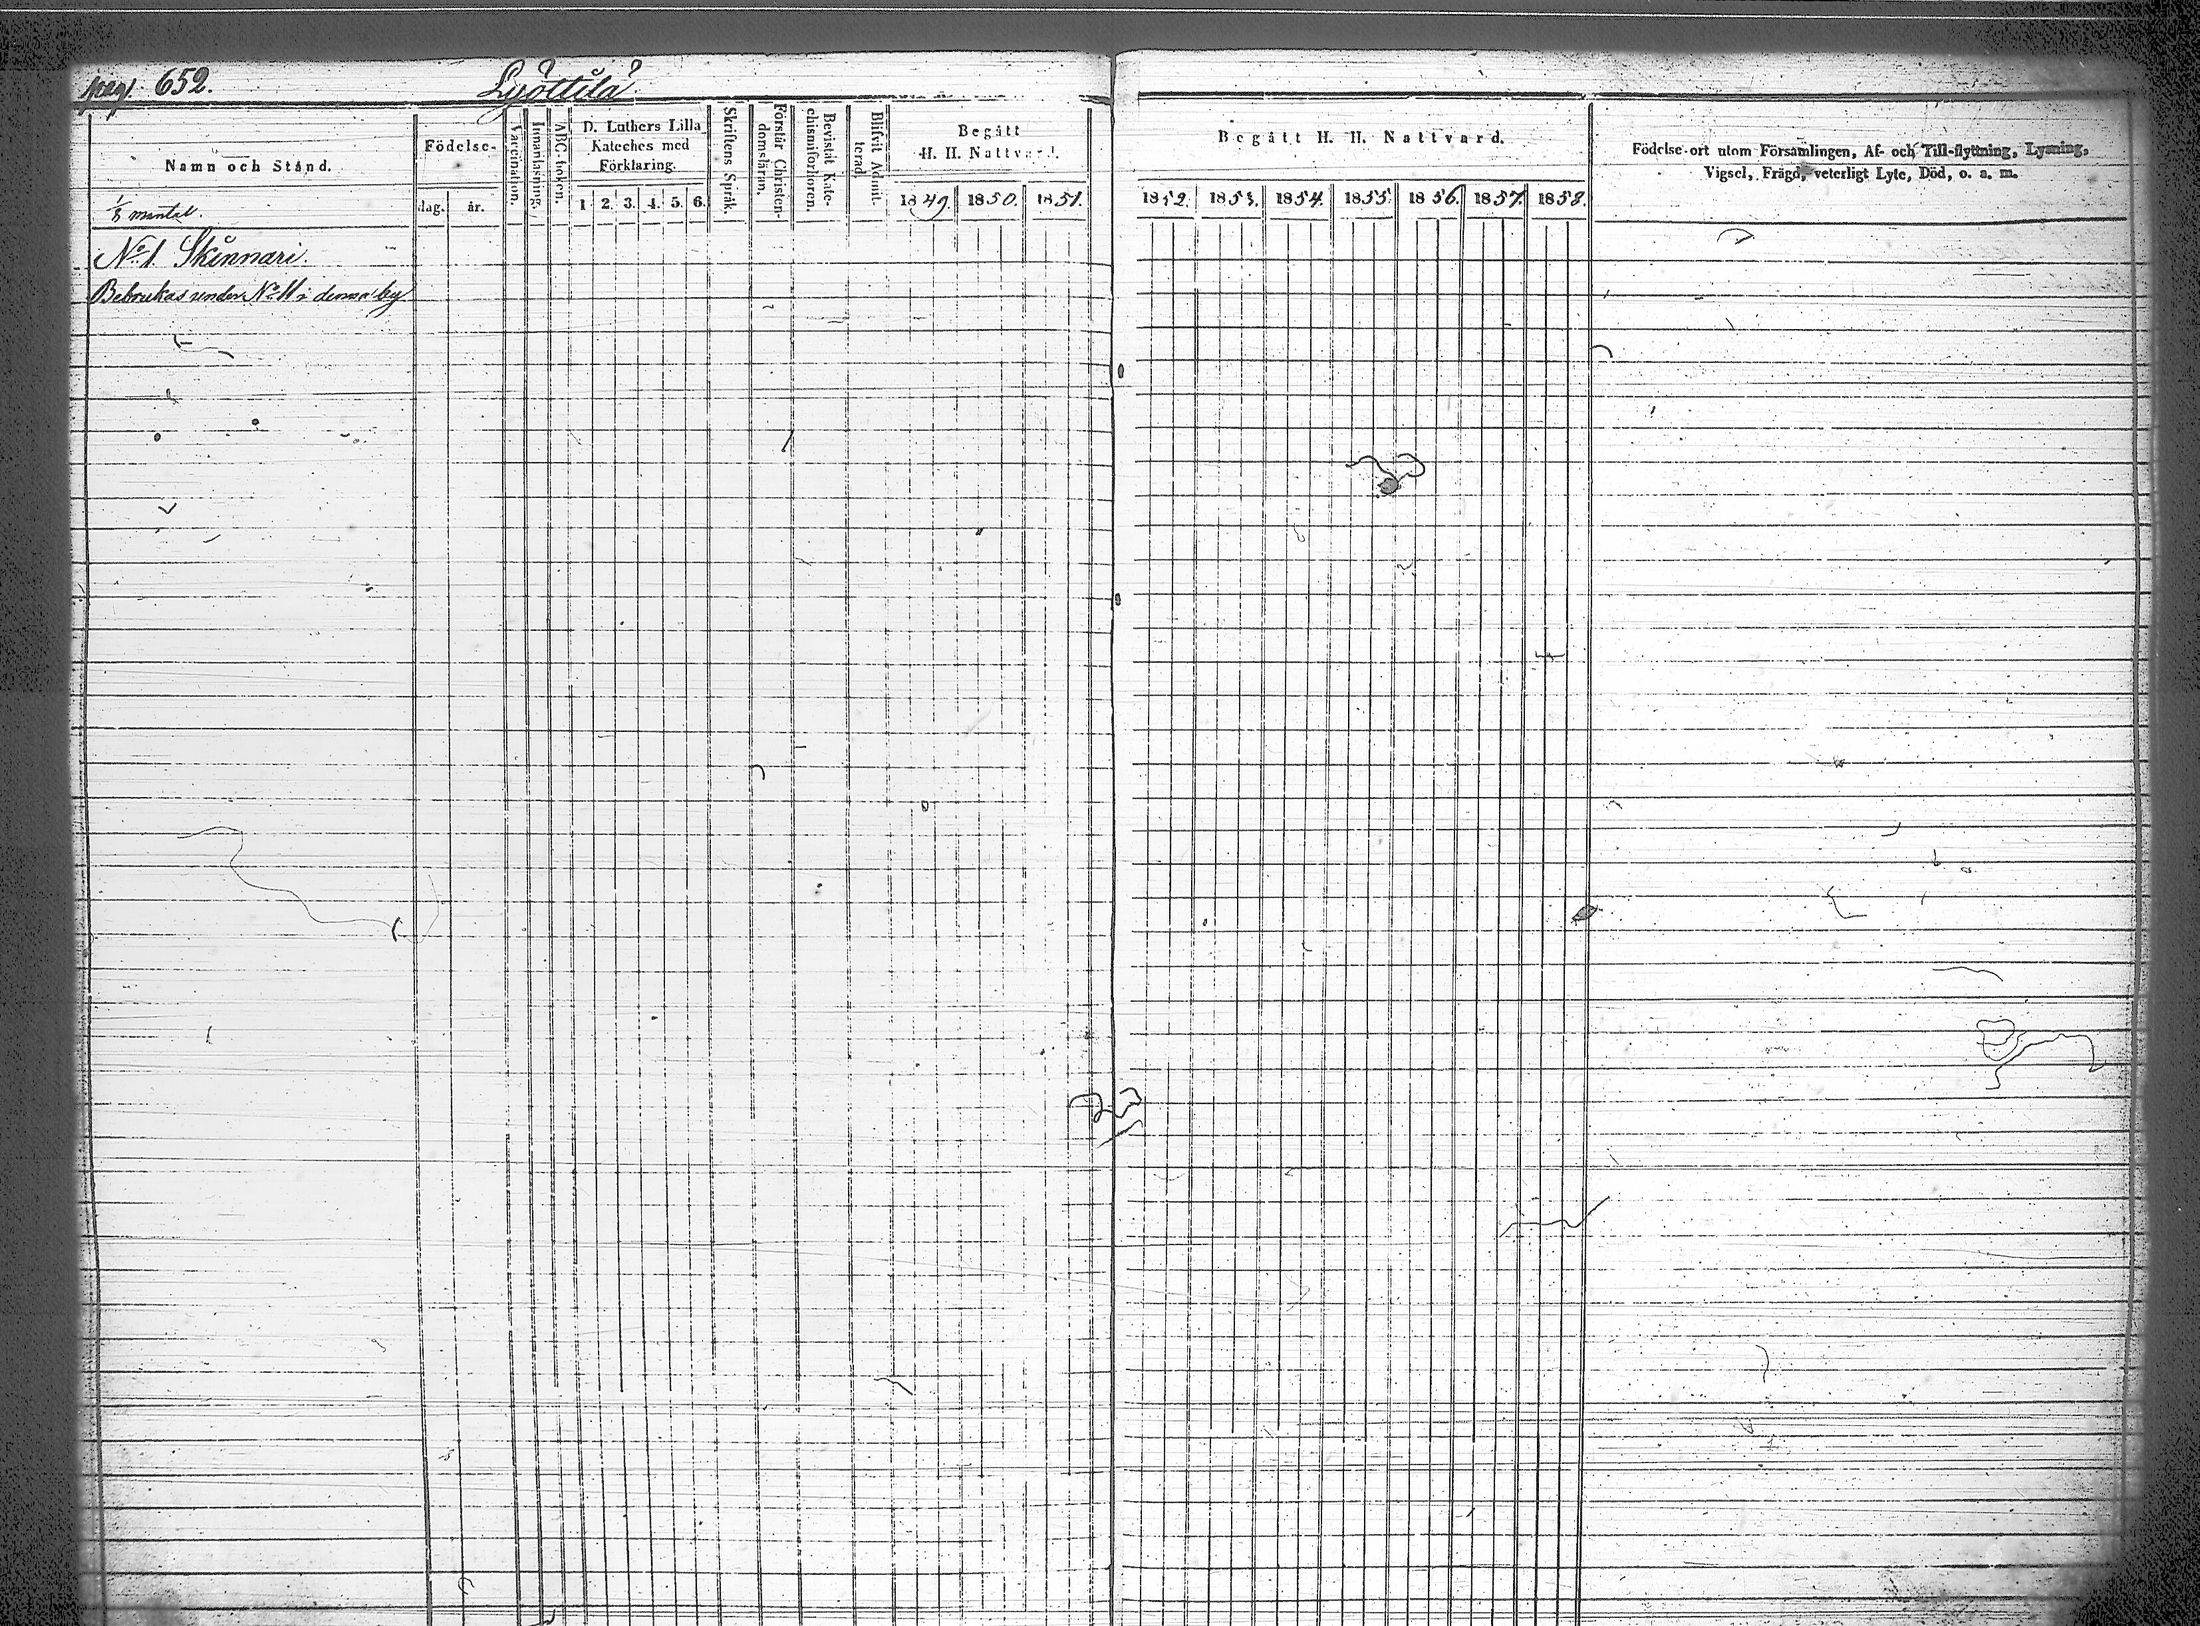 pag. 652.
Lyöttilä
Namn och Stånd.
1/8 mantal.
Födelse-
dag.
år.
Vaccination.
Innanläsning.
ABC-boken.
D. Luthers Lilla
Kateches med
Förklaring.
1 2. 3. 4. 5. 6.
Skriftens Språk.
Förstår Christen-
domsläran.
Bevistat Kate-
chismiförhören.
Blifvit Admit-
terad.
Begått
H. H. Nattvard.
1849. 1850. 1851.
Begått H. H. Nattvard.
1852. 1853. 1854. 1855. 1856. 1857. 1858.
Födelse-ort utom Församlingen, Af- och Till-flyttning, Lysning,
Vigsel, Frägd, veterligt Lyte, Död, o. s. m.
No. 1. Skinnari.
Bebrukas under No. 11 i denna by